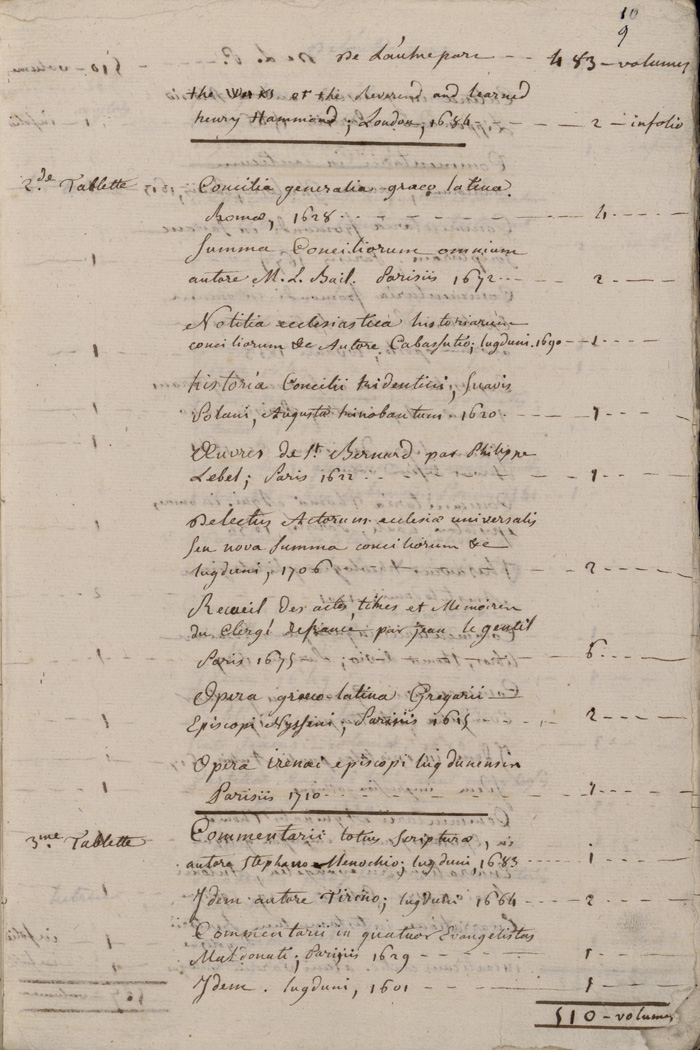 10
9
De L'autre part - - 483 - volumes
the Works of the Reverend and learned
henry Hammond; London, 1684 - - 2 - infolio
2.de Tablette Concilia generalia græco latina.
Romæ, 1628 - - - 4 - -
Summa Conciliorum omnium
autore M. L. Bail. Parisiis 1672 - - 2 - -
Notitia ecclesiastica historiarum
conciliorum &c Autore Cabassutio; lugduni. 1690 - - 1 - -
historia Concilii tridentini, Suavis
Polani, Augustæ trinobantum 1620 - - 1 - -
Œuvres de St. Bernard par Philippe
Lebel; Paris 1622 - - 1 - -
Delectus Actorum ecclesiæ universalis
seu nova Summa conciliorum &c
lugduni, 1706 - - 2 - -
Recueil des actes, titres et Mémoires
du Clergé de france par jean le gentil
Paris 1675 - - 6 - -
Opera græco-latina Gregorii
Episcopi Nysseni; Parisiis 1615 - - 2 - -
Opera irenæi episcopi lugdunensis
Parisiis 1710 - - 1 - -
3.me Tablette Commentarii totius Scripturæ,
autore Stephano Menochio; lugduni, 1683 - - 1 - -
Idem autore Tirino; lugduni 1664 - - 2 - -
Commentarii in quatuor Evangelistas
Maldonati; Parisiis 1629 - - 1 - -
Idem. lugduni, 1601 - - 1 - -
510 - volumes